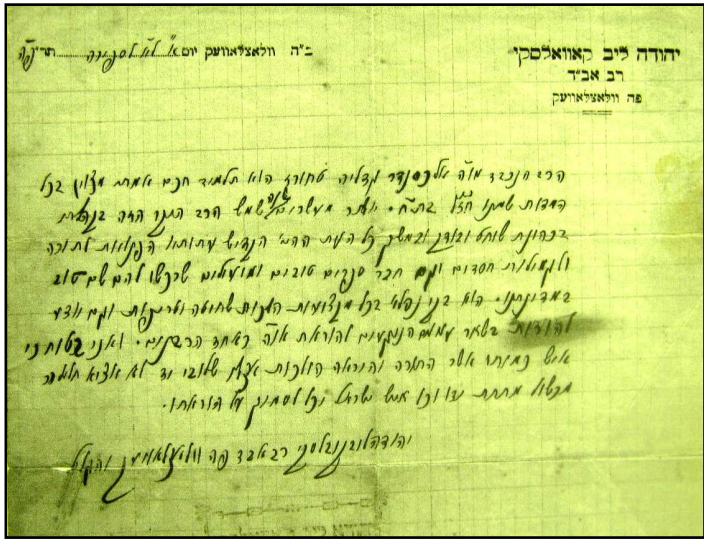 יהודה ליב קאוואלסקי
רב אב״ד
פה וולאצלאוועק
ב״ה וולאצלאוועק יום א׳ לסדר תר״פ
הרב הנכבד מו״ה אלכסנדר גדליה הוא תלמיד חכם אמתי מצוין בכל
המדות שמנו חז״ל בת״ח. יותר מעשרים שנה שמש הרב הזה
בכהונת שוחט ובודק ובמשך כל העת הזה הקדיש עתותיו הפנאות לתורה
ולגמילות חסדים וגם חבר ספרים טובים ומועילים שרכשו להם שם טוב
במדינתנו. הוא בקי נפלא בכל מקצועות הלכות שחיטה וטריפות וגם יודע
להורות בשאר ענינים הנוגעים להוראת או״ה כאחד הרבנים. ואני בטוח כי
איש כמוהו אשר התורה והיראה הולכות אצלו שלובי יד לא תצא חלילה
מכשול מתחת ידו וכל איש ישראל יכול לסמוך על הוראתו.
יהודה ליב קאוואלסקי רב אבד פה וולאצלאוועק והגליל